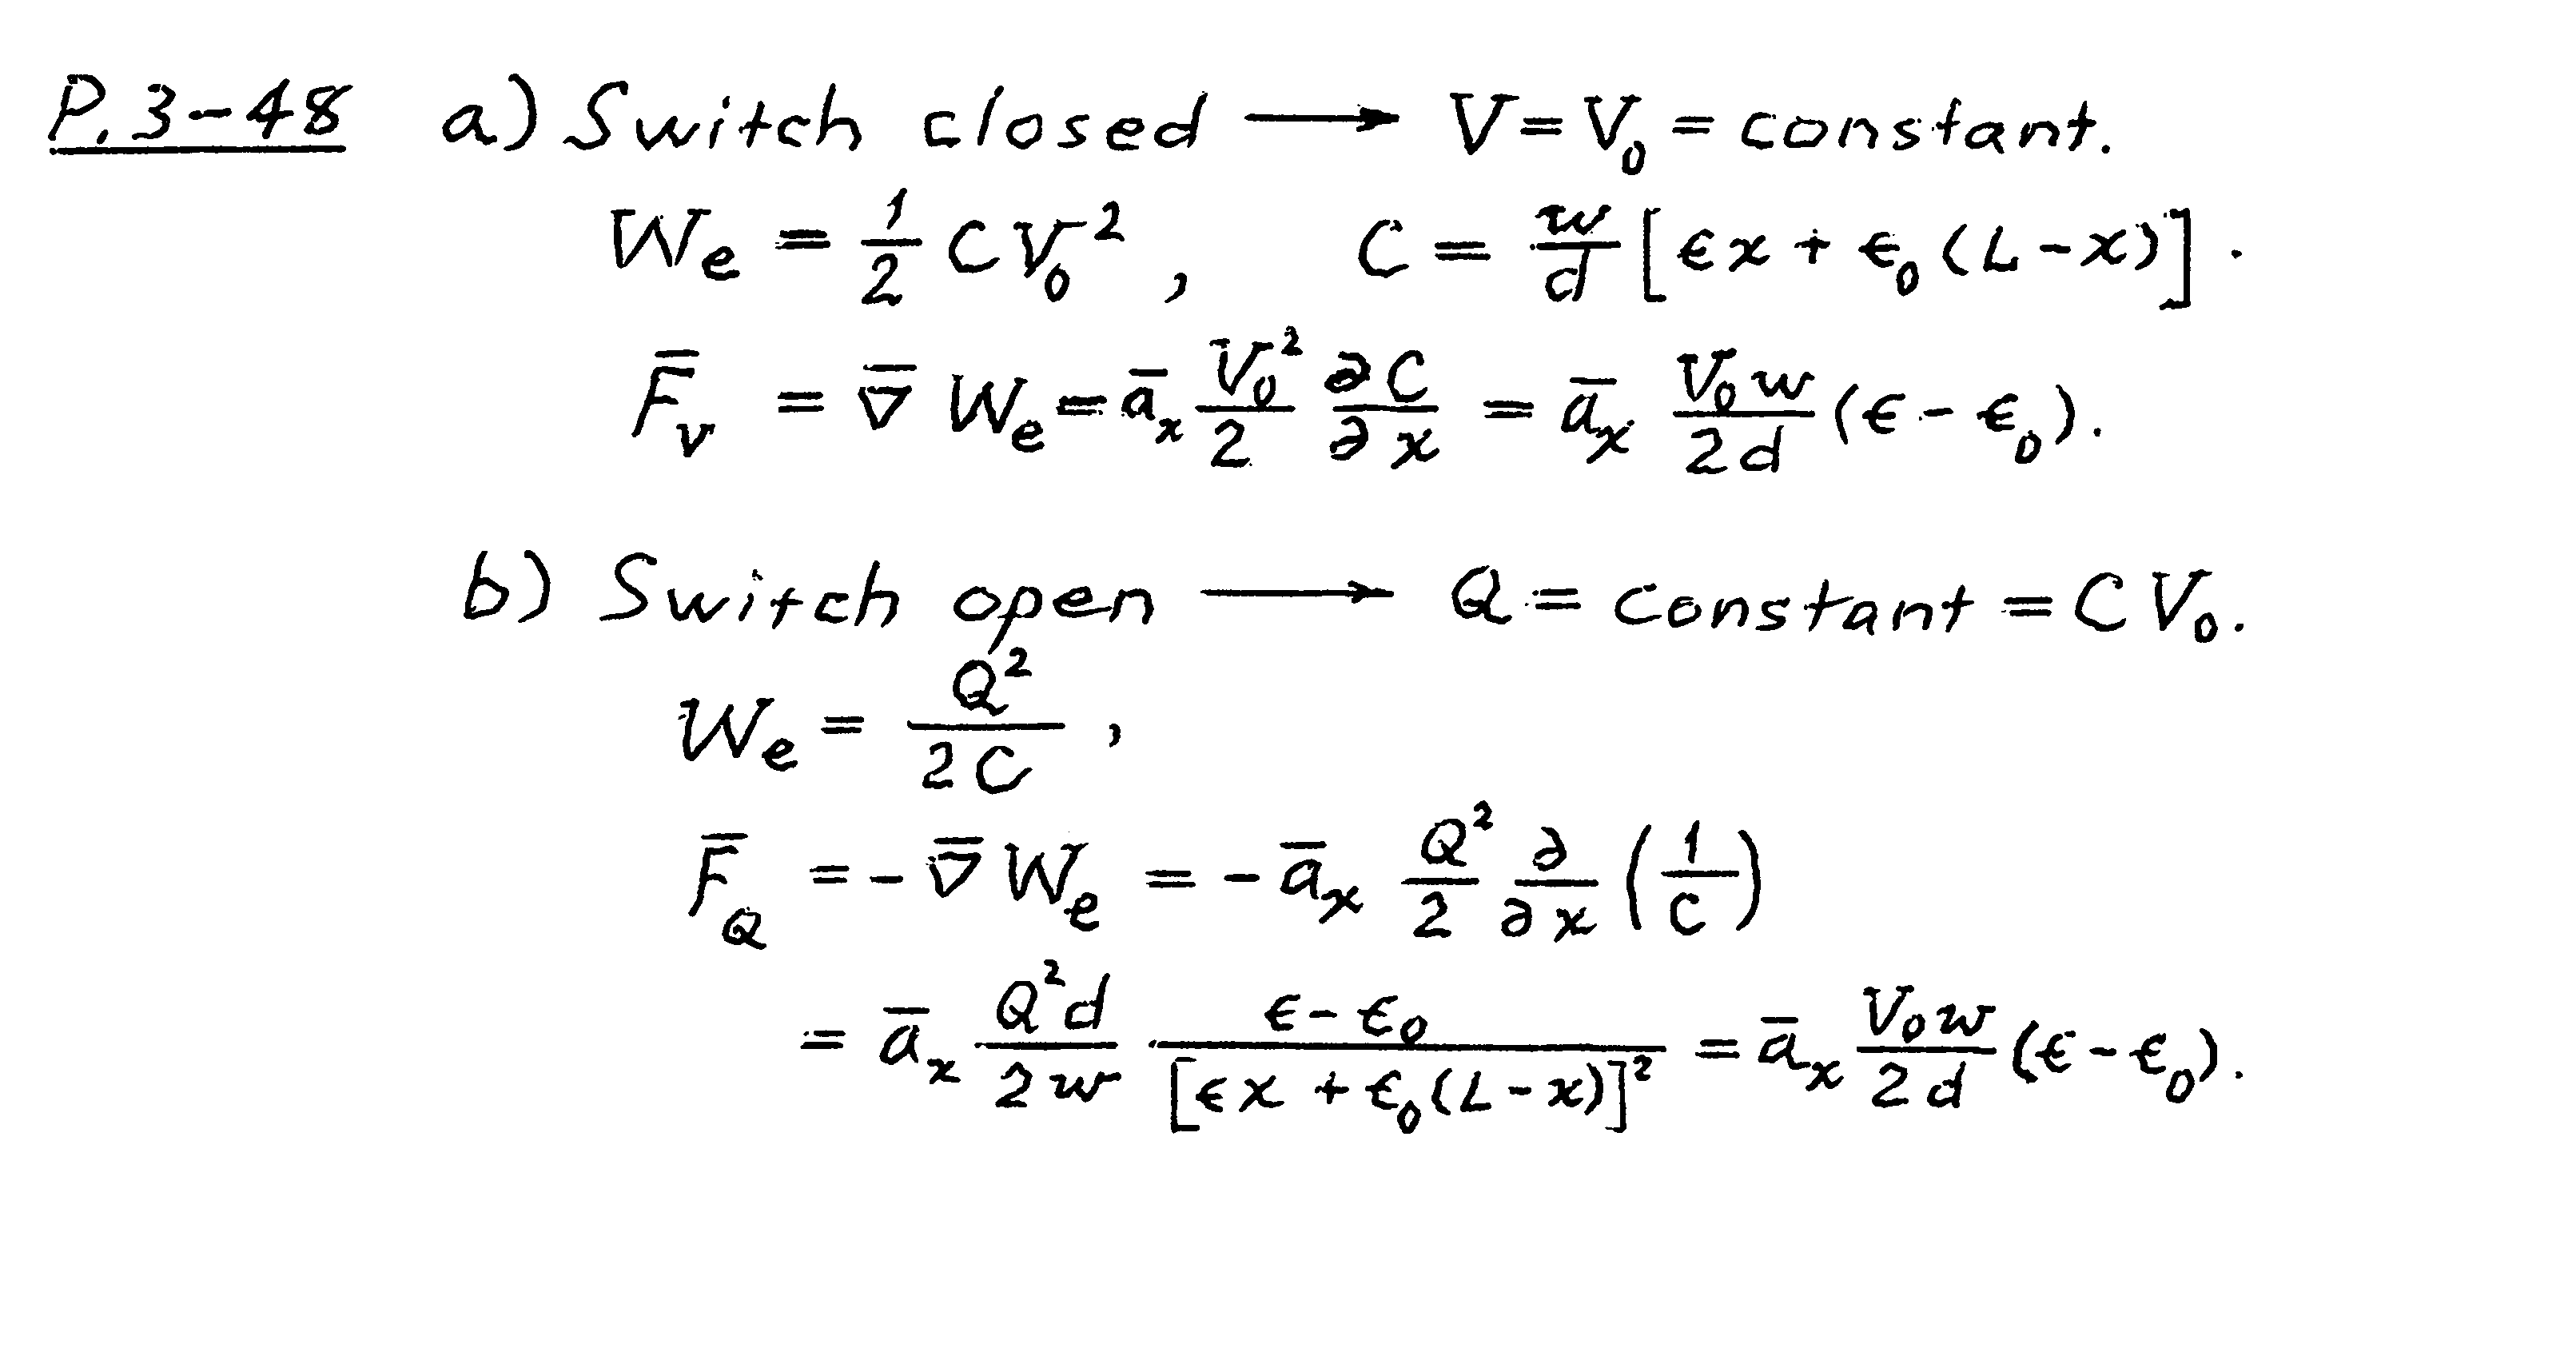 P. 3-48 a) Switch closed ⟶ V = V₀ = constant.
Wₑ = 1/2 C V₀², C = w/d [ϵx + ϵ₀(L-x)].
F̄ᵥ = ∇̄ Wₑ = āₓ V₀²/2 ∂C/∂x = āₓ V₀w/2d (ϵ - ϵ₀).
b) Switch open ⟶ Q = constant = C V₀.
Wₑ = Q²/2C,
F̄_Q = - ∇̄ Wₑ = - āₓ Q²/2 ∂/∂x (1/C)
= āₓ Q²d/2w (ϵ - ϵ₀)/[ϵx + ϵ₀(L-x)]² = āₓ V₀w/2d (ϵ - ϵ₀).